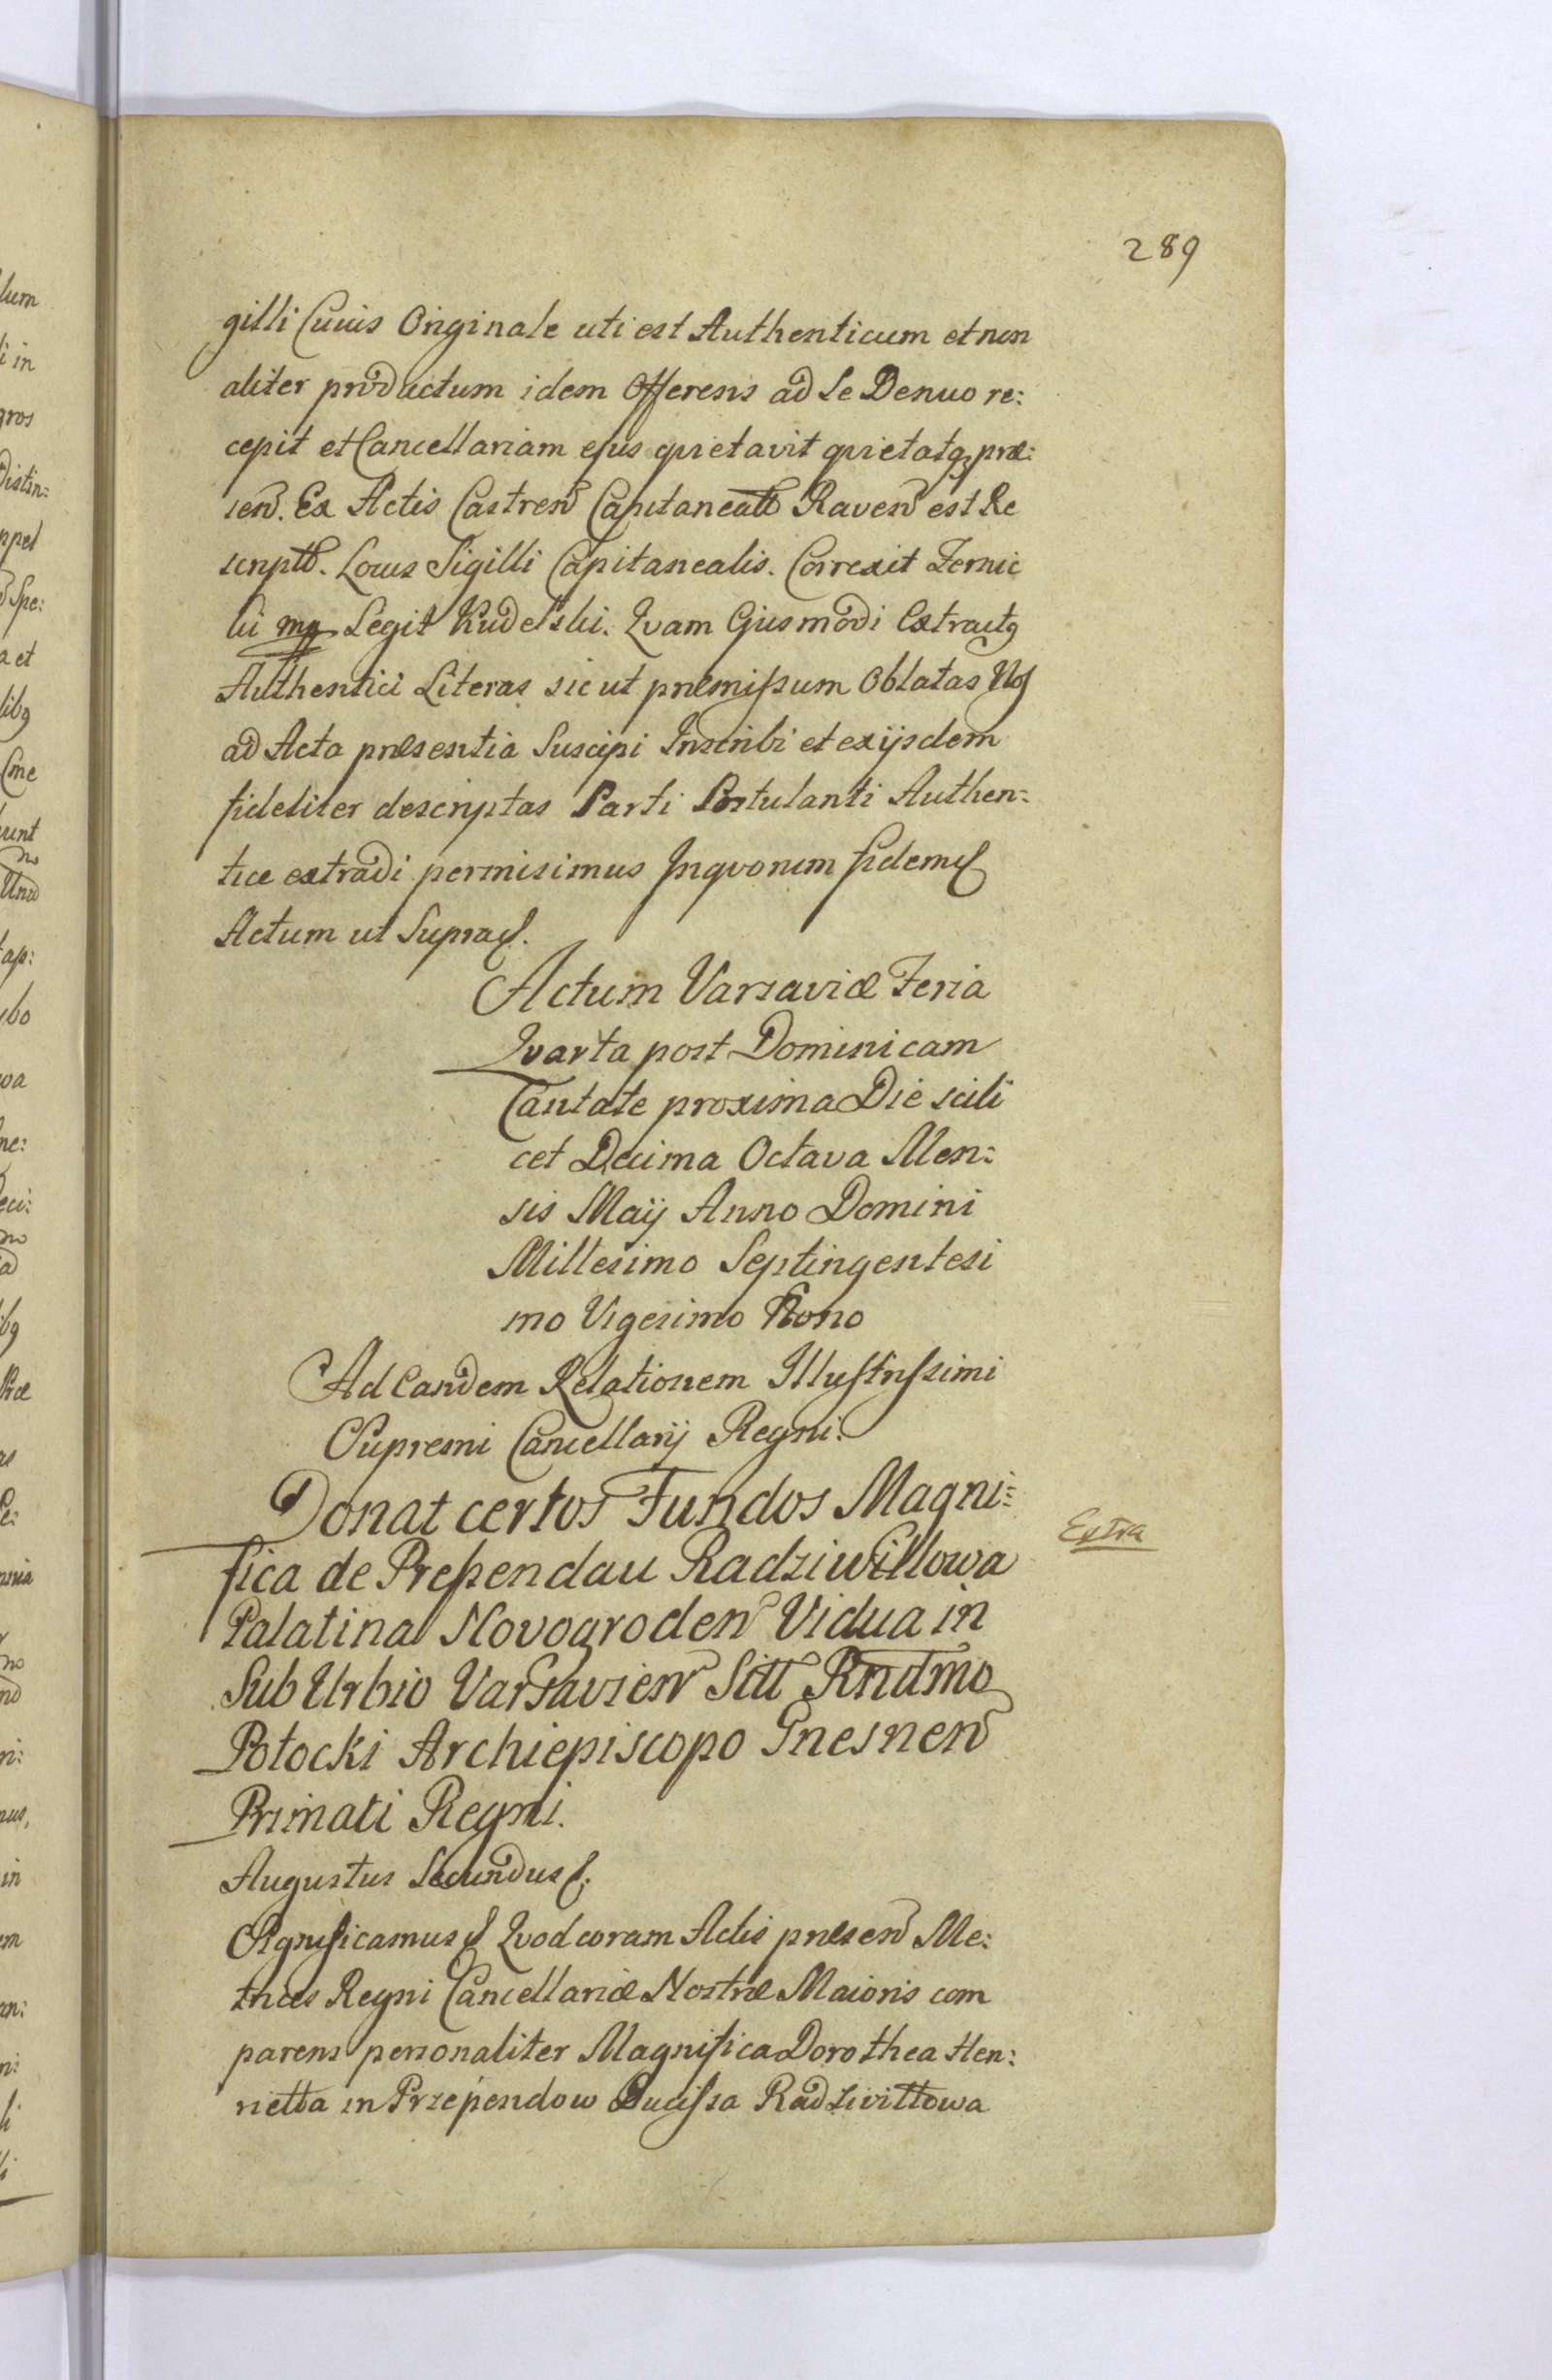 289
gilli Cuius Originale uti est Authenticum et non
aliter productum idem Offerens ad Se Denuo re:
cepit et Cancellariam ejus quietavit quietatq præ:
sen. Ex Actis Castren Capitaneatt Raven est Re
scriptt. Locus Sigilli Capitanealis. Correxit Fernic
ki mp Legit Kudelski. Qvam Ejusmodi Extractq
Authentici Literas sic ut præmissum Oblatas Nos
ad Acta præsentia Suscipi Inscribi et exijsdem
fideliter descriptas Parti Postulanti Authen:
tice extradi permisimus Inqvorum fidem
Actum ut Supra.
Actum Varsaviæ Feria
Qvarta post Dominicam
Cantate proxima Die scili
cet Decima Octava Men:
sis Maij Anno Domini
Millesimo Septingentesi
mo Vigesimo Nono
Ad Eandem Relationem Illustrissimi
Supremi Cancellarij Regni.
Donat certos Fundos Magni:
fica de Prependau Radziwillowa
Extra
Palatina Novogroden Vidua in
Sub Urbio Varsavien Sitt Rndmo
Potocki Archiepiscopo Gnesnen
Primati Regni.
Augustus Secundus
Significamus Qvod coram Actis præsen Me:
trices Regni Cancellariæ Nostræ Maioris com
parens personaliter Magnifica Dorothea Hen:
rietta in Przependow Ducissa Radziwiłłowa